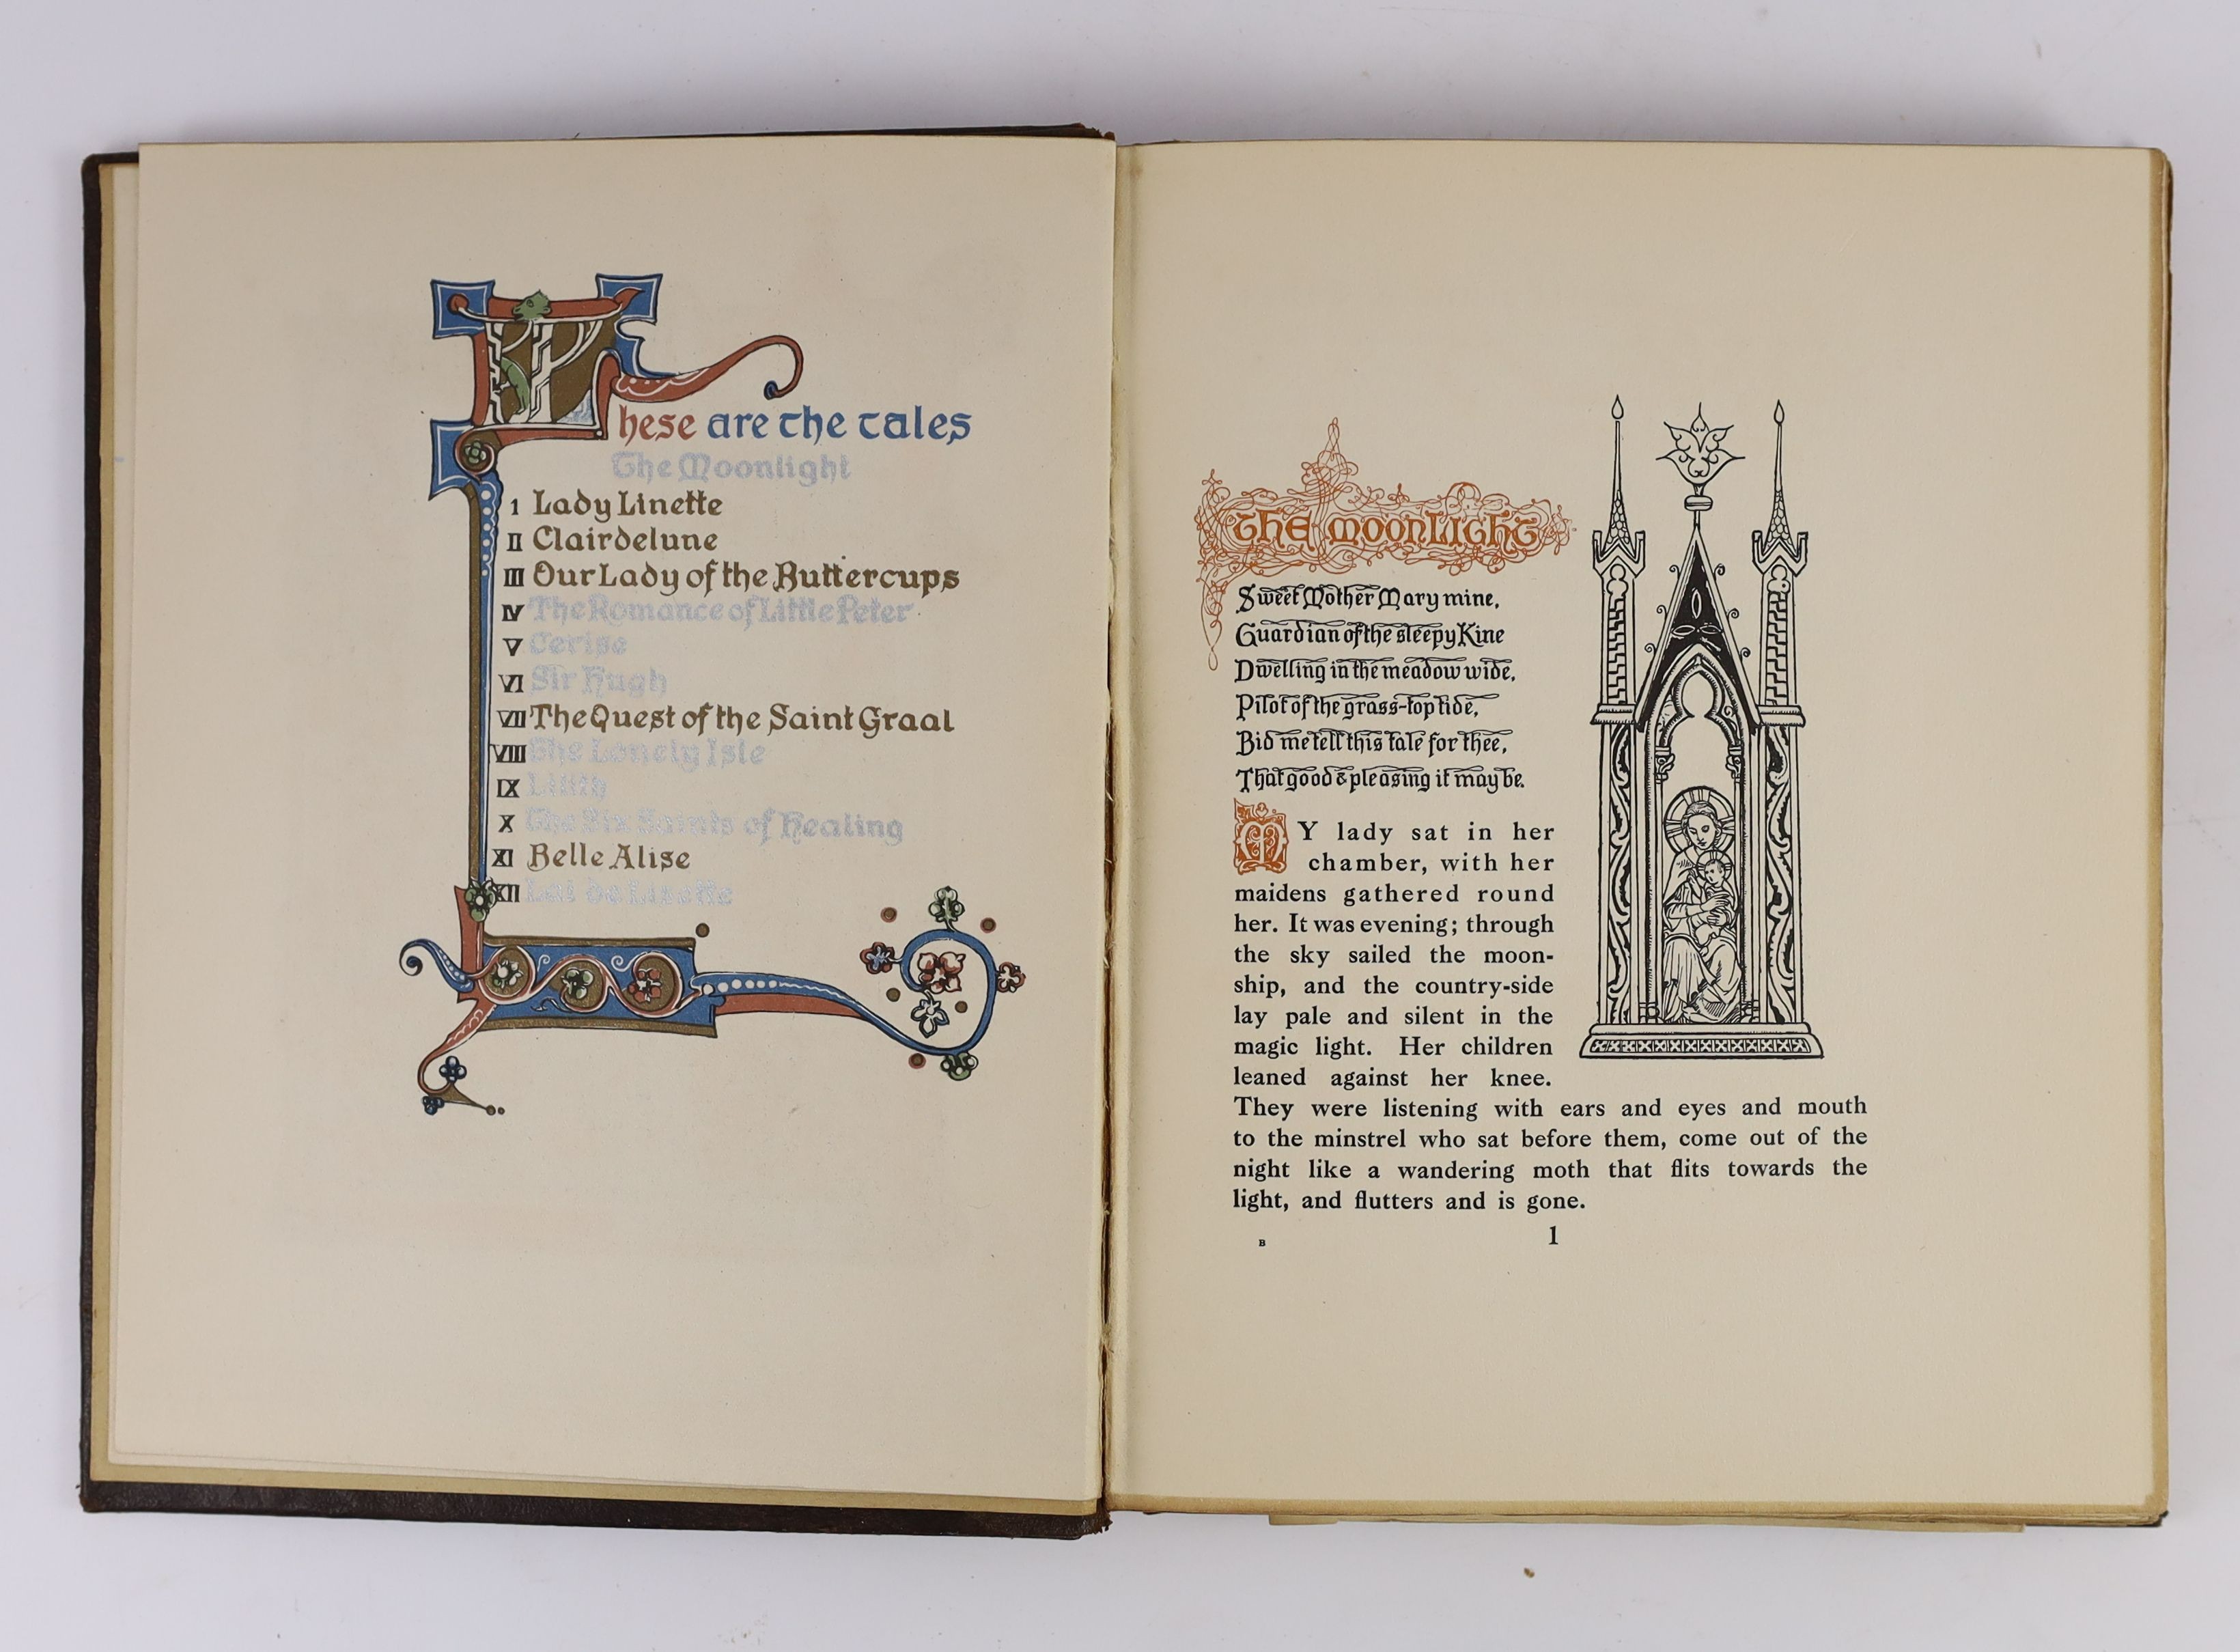 These are the tales
The Moonlight
I Lady Linette
II Clairdelune
III Our Lady of the Buttercups
IV The Romance of Little Peter
V Cerise
VI Sir Hugh
VII The Quest of the Saint Graal
VIII The Lonely Isle
IX Lilith
X The Six Saints of Healing
XI Belle Alise
XII Lai de Lisette
THE MOONLIGHT
Sweet Mother Mary mine,
Guardian of the sleepy Kine
Dwelling in the meadow wide,
Pilot of the grass-top tide,
Bid me tell this tale for thee,
That good & pleasing it may be.
MY lady sat in her
chamber, with her
maidens gathered round
her. It was evening; through
the sky sailed the moon-
ship, and the country-side
lay pale and silent in the
magic light. Her children
leaned against her knee.
They were listening with ears and eyes and mouth
to the minstrel who sat before them, come out of the
night like a wandering moth that flits towards the
light, and flutters and is gone.
B 1